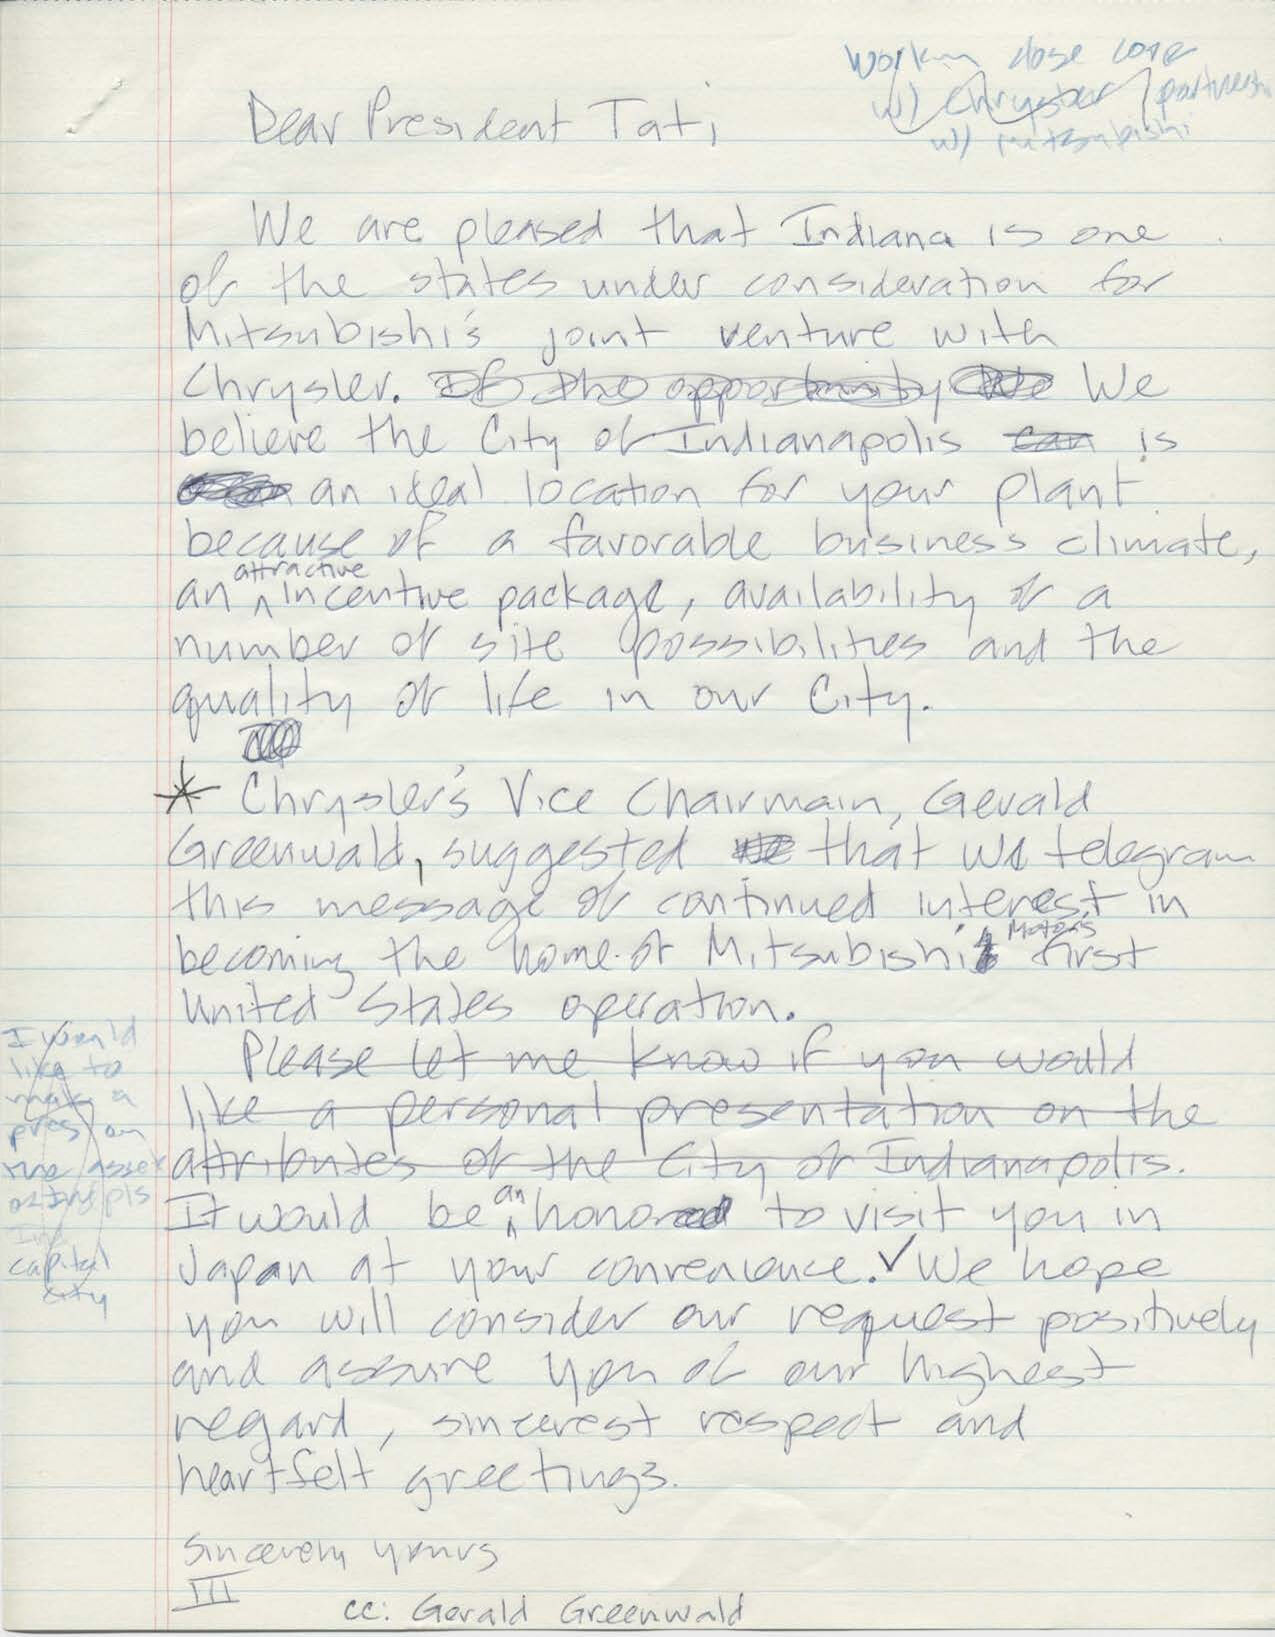 workin close core
w/ Chrysler partners
w/ mitsubishi
Dear President Tati
We are pleased that Indiana is one
of the states under consideration for
Mitsubishi's joint venture with
Chrysler. If the opportunity We We
believe the City of Indianapolis can is
an ideal location for your plant
because of a favorable business climate,
attractive
an ^ incentive package, availability of a
number of site possibilities and the
quality of life in our City.
* Chrysler's Vice Chairmain, Gerald
Greenwald, suggested we that we telegram
this message of continued interest in
Motors
becoming the home of Mitsubishi first
United States operation.
Please let me know if you would
like a personal presentation on the
attributes of the City of Indianapolis.
an
It would be ^ honor to visit you in
Japan at your convenience. ✓ We hope
you will consider our request positively
and assure you of our highest
regard, sincerest respect and
heartfelt greetings.
Sincerely yours
III
cc: Gerald Greenwald
I would
like to
make a
pres on
the asset
of Indpls
capital
city